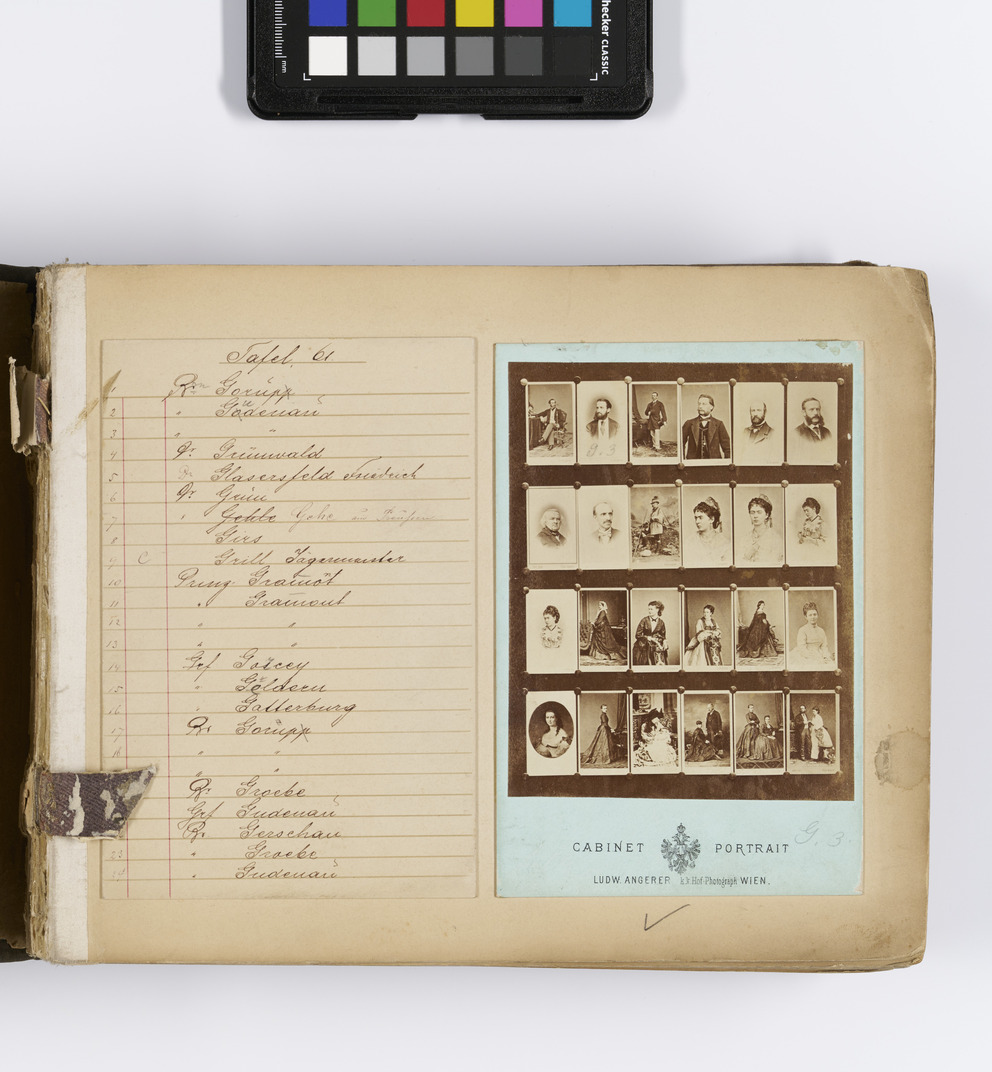 checker CLASSIC
mm
Tafel 61
1 Gorupp
2 " Gödenau
3 " "
4 Dr Grünwald
5 Dr Glasersfeld Friedrich
6 Dr
7 " Gehbe Gehe
8 Girs
9 C Grill Jägermeister
10 Gramont
11 " Gramont
12 " "
13 " "
14 Grf Gorcey
15 " Göldern
16 " Gatterburg
17 Gorupp
18 " "
" "
Groebe
Grf Gudenau
Gerschau
23 " Groebe
24 " Gudenau
G. 3
CABINET PORTRAIT
G. 3.
LUDW. ANGERER k.k. Hof-Photograph WIEN.